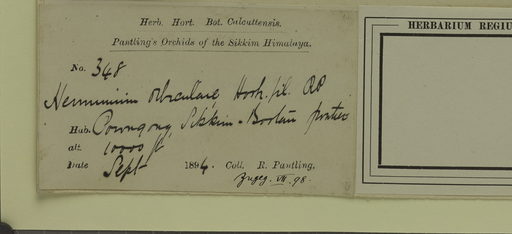 Herb. Hort. Bot. Calcuttensis.
Pantling's Orchids of the Sikkim Himalaya.
No. 348
Herminium orbiculare Hook. fil.
Hab. Sikkim - Bootan frontier
alt. 10000 ft
Date Sept 1894. Coll. R. Pantling.
Zugeg. VII. 98.
HERBARIUM REGIU